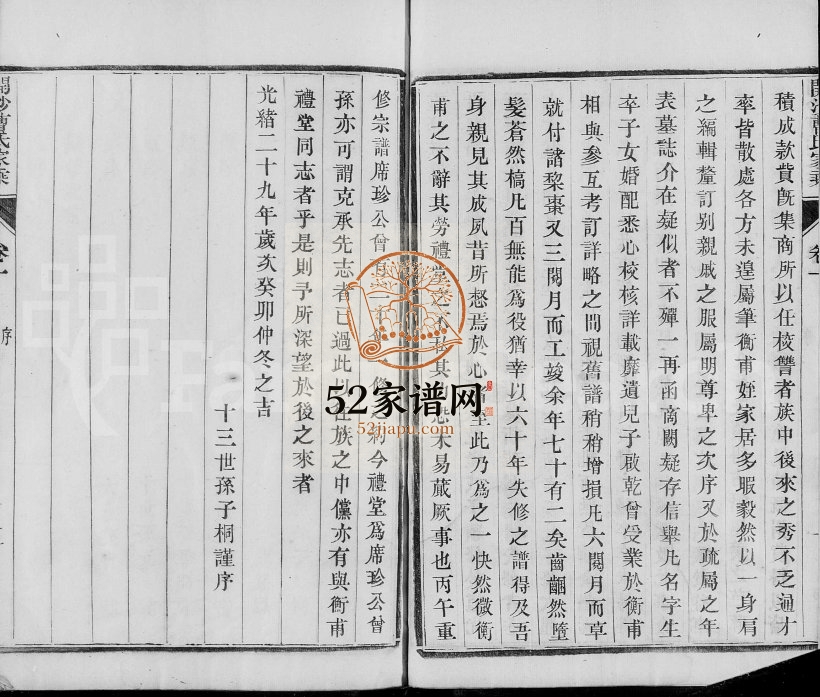 積成款費旣集商所以任校讐者族中後來之秀不乏通才
率皆散處各方未遑屬筆衡甫姪家居多暇毅然以一身肩
之編輯釐訂别親戚之服屬明尊卑之次序又於疏屬之年
表墓誌介在疑似者不殫一再函商闕疑存信舉凡名字生
卒子女婚配悉心校核詳載靡遺兒子啟乾曾受業於衡甫
相與參互考訂詳略之間視舊譜稍稍增損凡六閱月而草
就付諸棃棗又三閱月而工竣余年七十有二矣齒齫然墮
髮蒼然槁凡百無能爲役猶幸以六十年失修之譜得及吾
身親見其成夙昔所惄焉於心者至此乃爲之一快然微衡
甫之不辭其勞禮堂之不私其未易蕆厥事也丙午重
修宗譜席珍公曾今禮堂爲席珍公曾
孫亦可謂克承先志者已過此以往族之中儻亦有與衡甫
禮堂同志者乎是則予所深望於後之來者
光緒二十九年歲次癸卯仲冬之吉
十三世孫子桐謹序
氏家乘
卷一
序
52家谱网
52jiapu.com